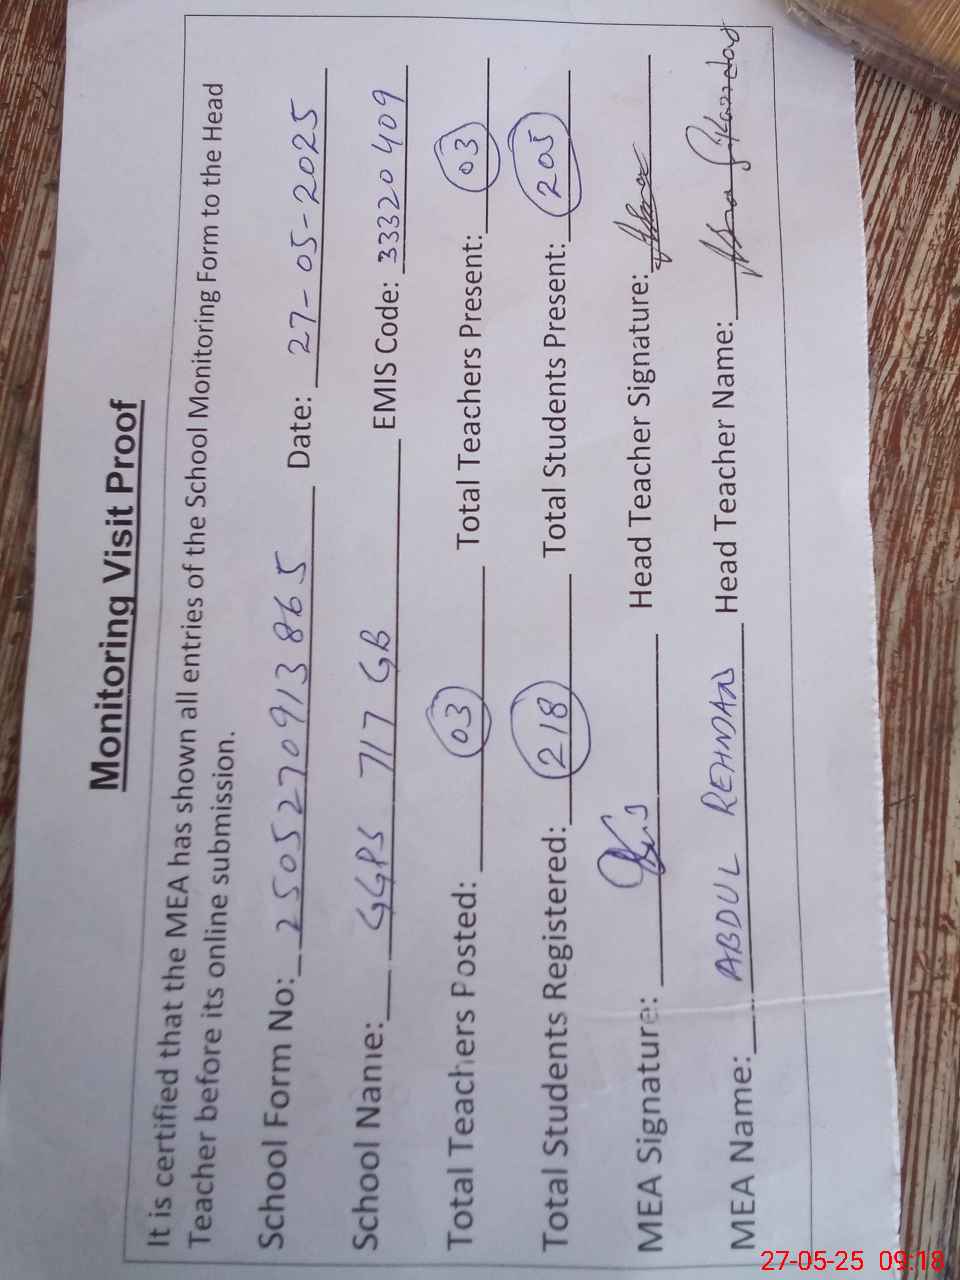 Monitoring Visit Proof
It is certified that the MEA has shown all entries of the School Monitoring Form to the Head
Teacher before its online submission.
School Form No: 2505270913865 Date: 27-05-2025
School Name: GGPS 717 GB EMIS Code: 33320409
Total Teachers Posted: 03 Total Teachers Present: 03
Total Students Registered: 218 Total Students Present: 205
MEA Signature: Head Teacher Signature:
MEA Name: ABDUL REHMAN Head Teacher Name:
27-05-25 09:18